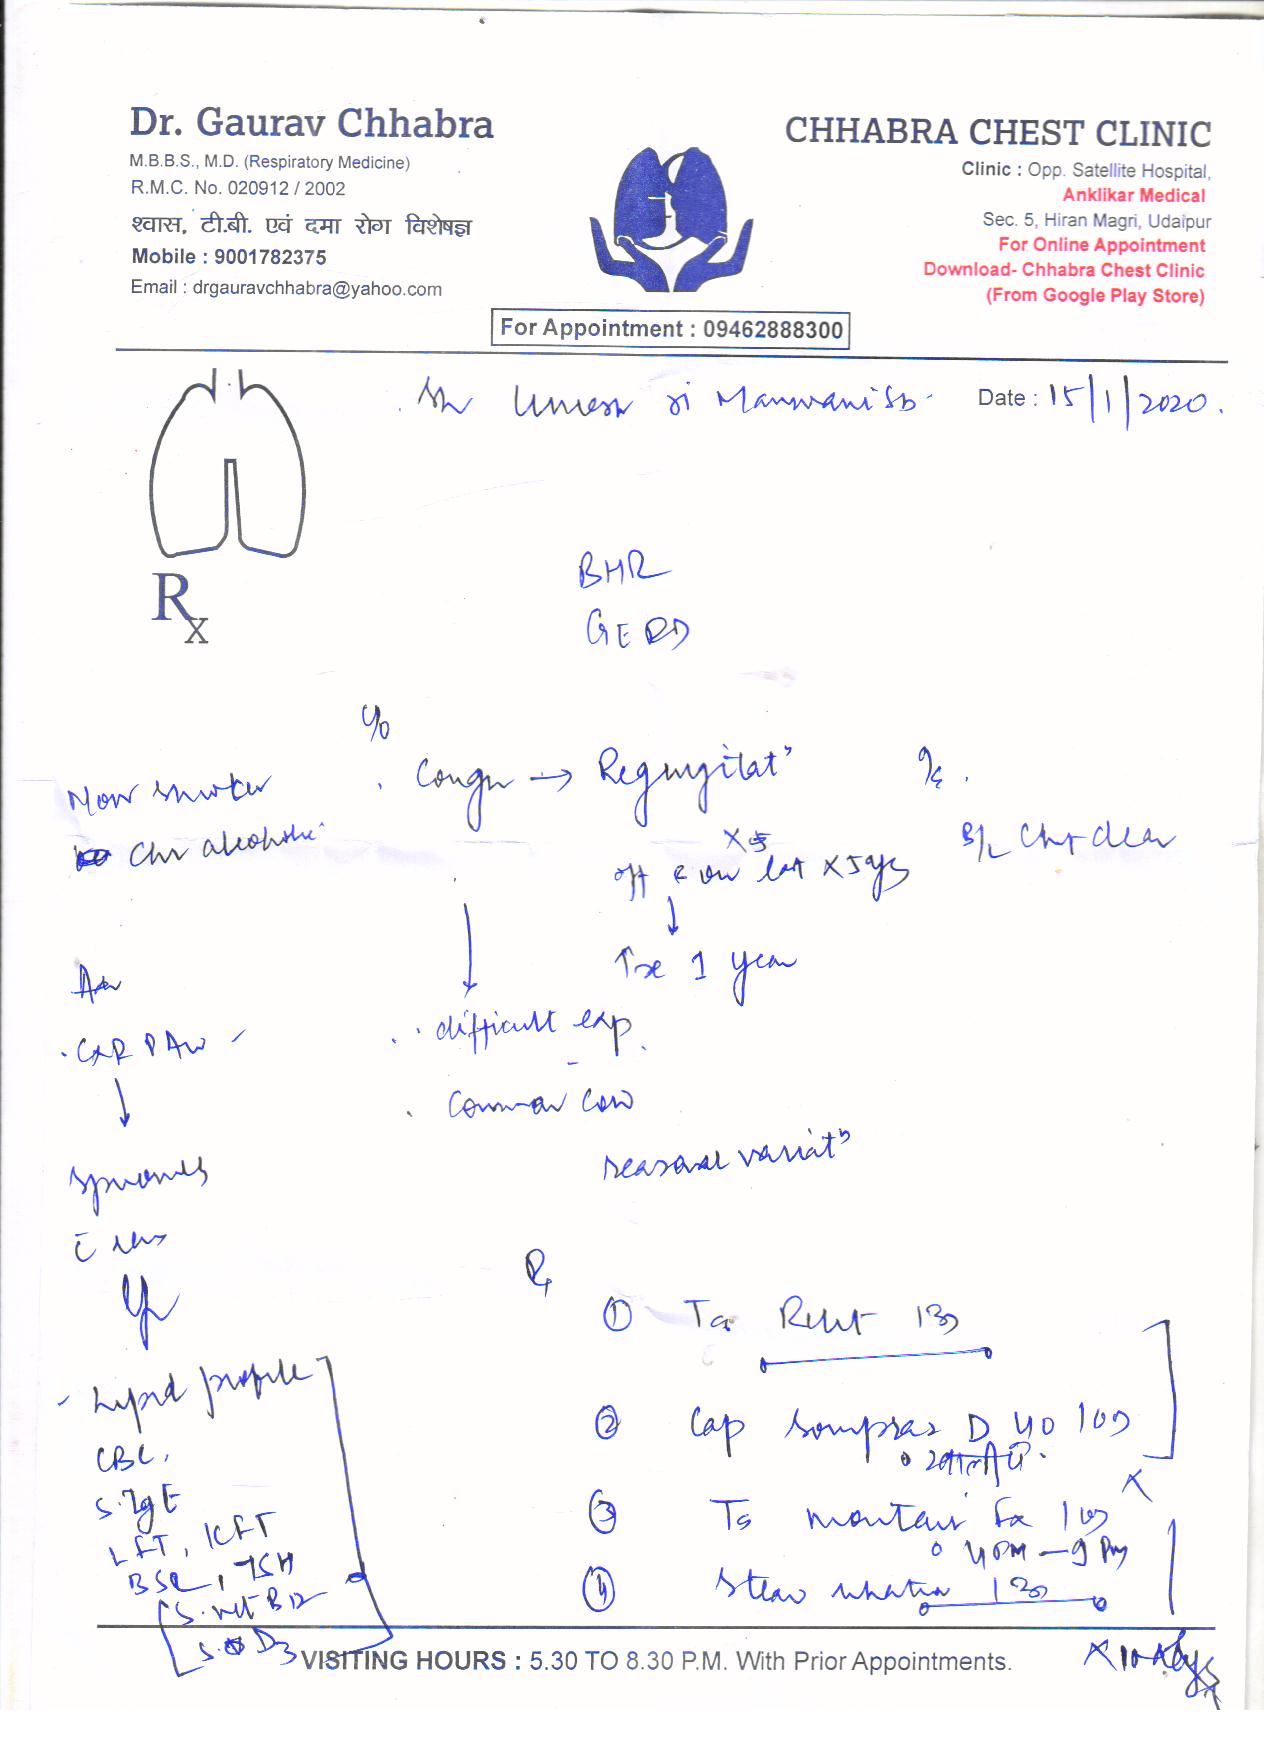 Dr. Gaurav Chhabra
M.B.B.S., M.D. (Respiratory Medicine)
R.M.C. No. 020912 / 2002
श्वास, टी.बी. एवं दमा रोग विशेषज्ञ
Mobile : 9001782375
Email : drgauravchhabra@yahoo.com
CHHABRA CHEST CLINIC
Clinic : Opp. Satellite Hospital,
Anklikar Medical
Sec. 5, Hiran Magri, Udaipur
For Online Appointment
Download- Chhabra Chest Clinic
(From Google Play Store)
For Appointment : 09462888300
Umesh ji Manwani Sb. Date : 15/1/2020.
Rx
BHR
GERD
c/o
Cough → Regurgitat'
Non smoker
Chr alcoholic
B/L Chest clear
off & on last x 5 yrs
↓
↑se 1 year
Adv
. CXR PA
. difficult exp.
↓
. Common Cold
seasonal variat'
Rx
Lipid profile
CBC,
S. IgE
LFT, KFT
BSL, TSH
S. vit B12
S. D3
① Tab
② Cap Sompraz D 40
③ Tab Montair Fx
4 PM — 9 PM
④ Steam
x 10 days
VISITING HOURS : 5.30 TO 8.30 P.M. With Prior Appointments.